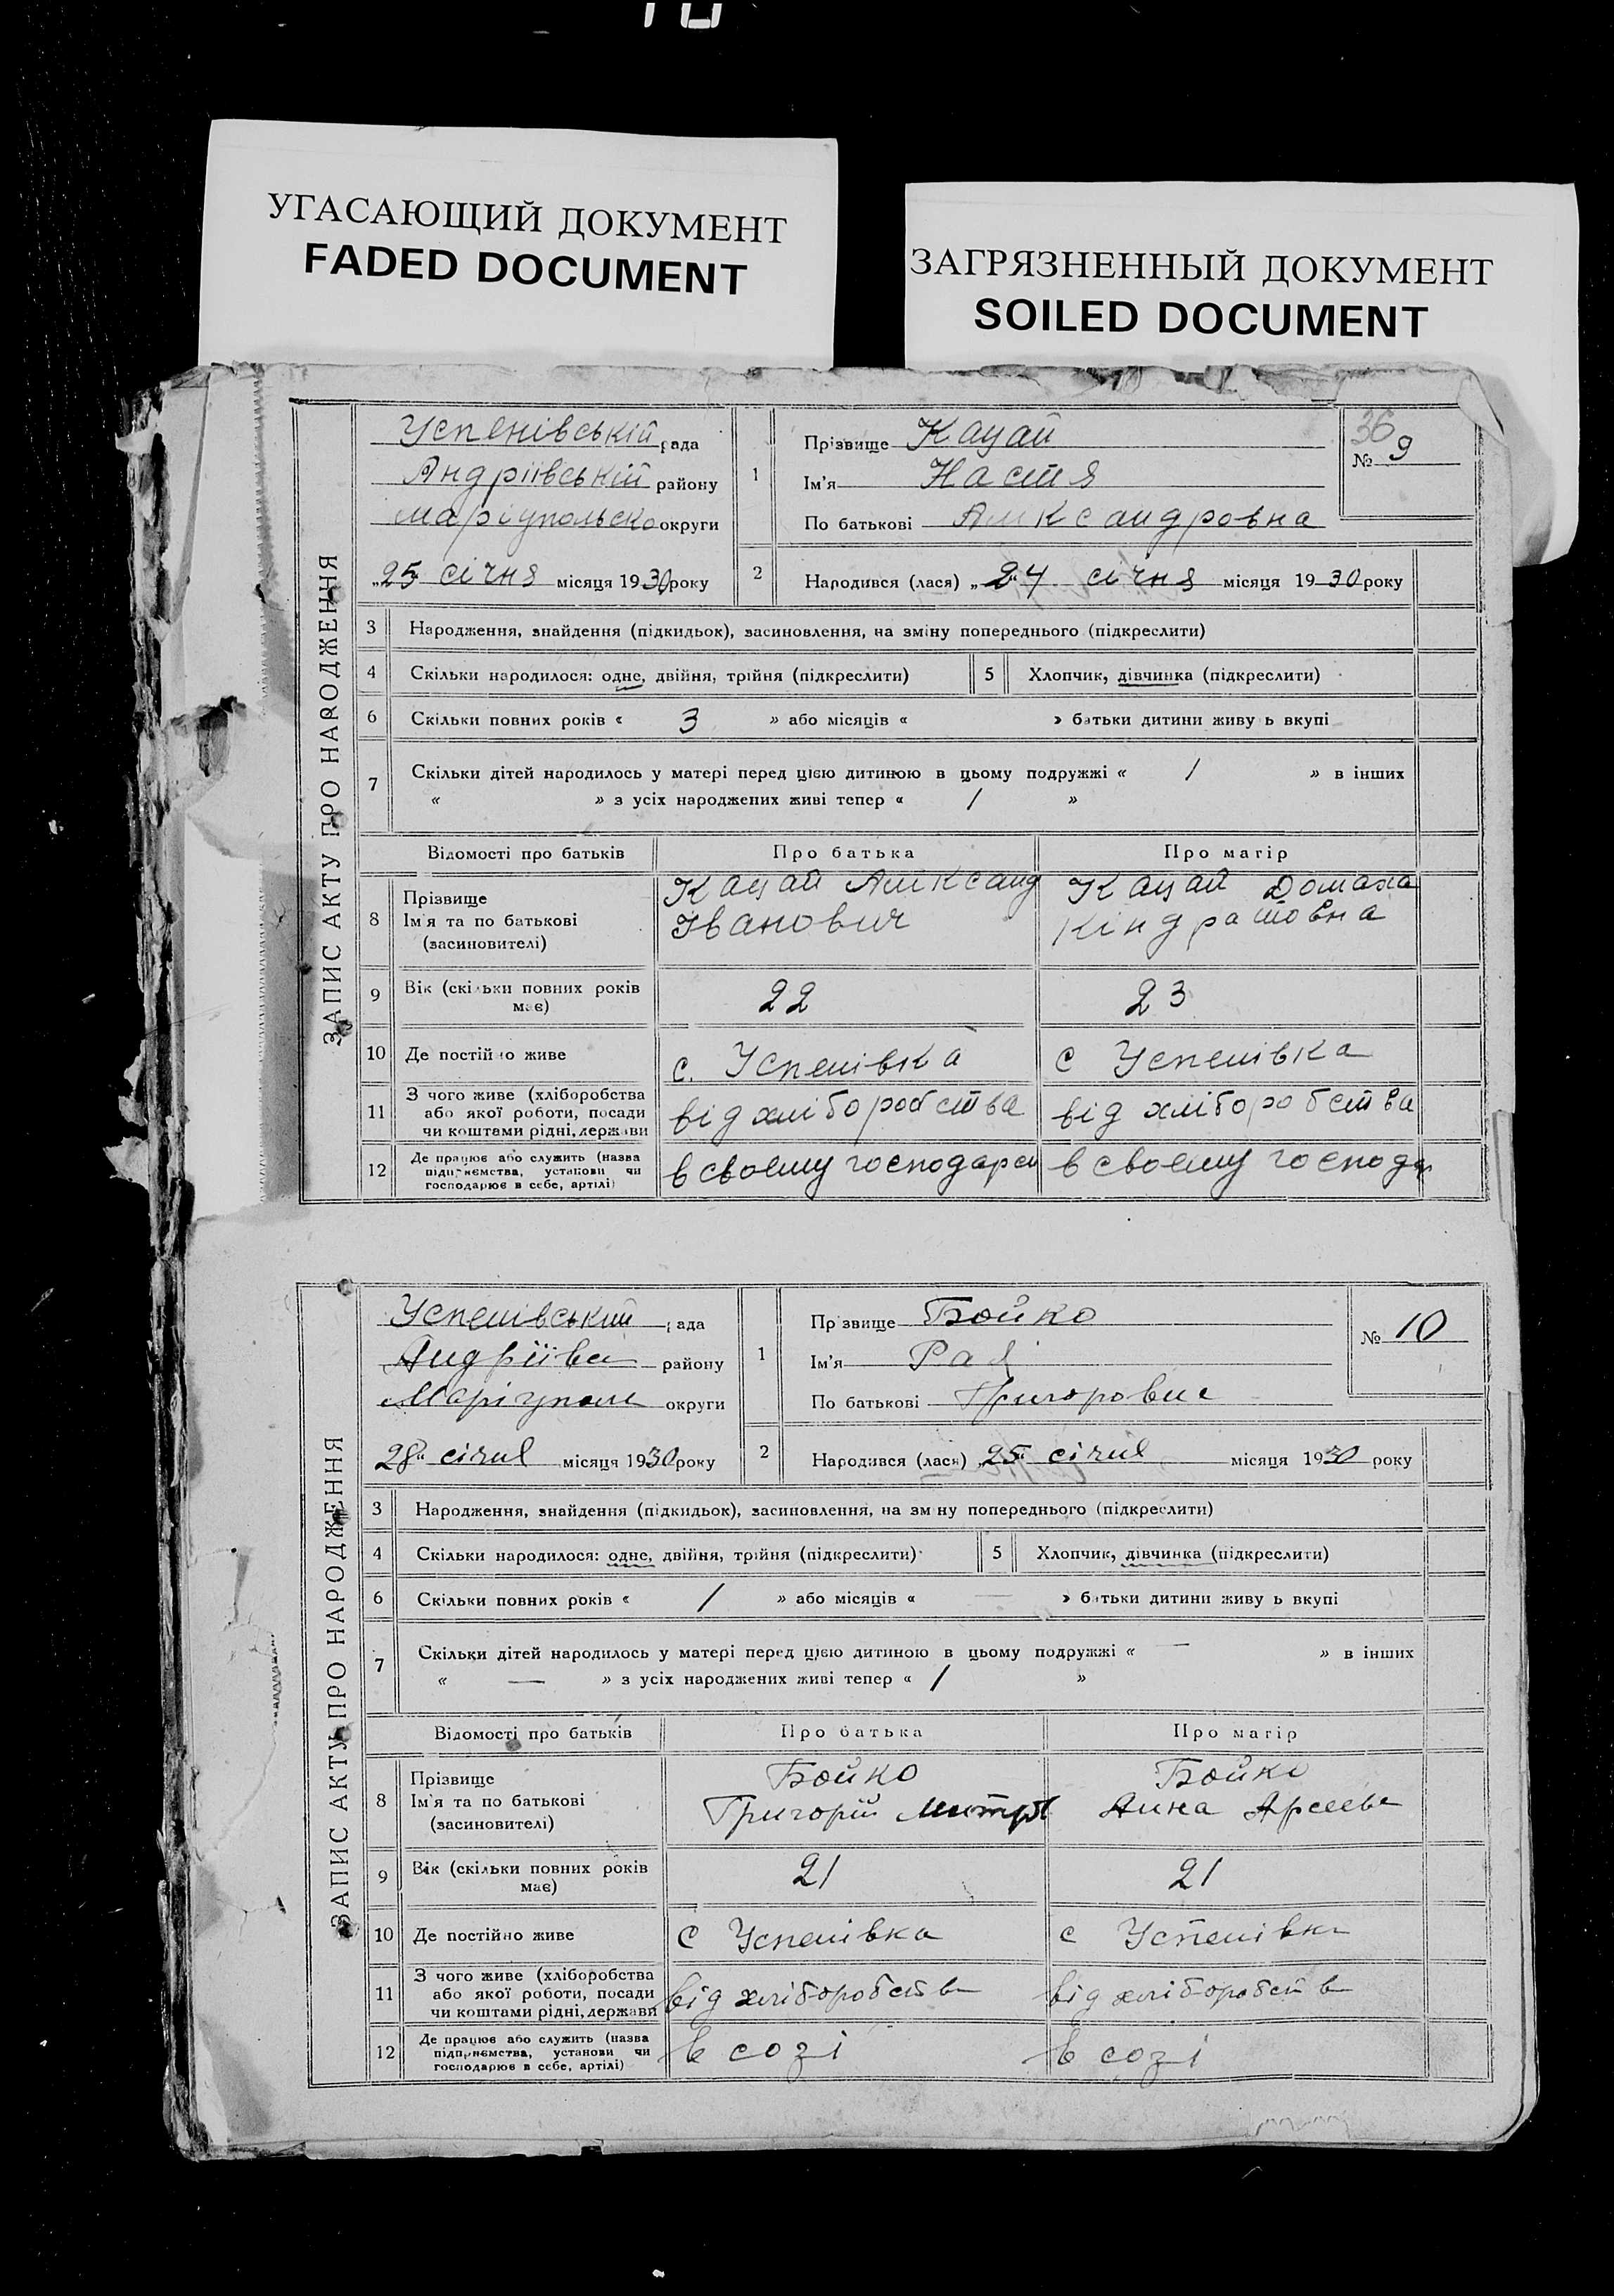 УГАСАЮЩИЙ ДОКУМЕНТ
FADED DOCUMENT
ЗАГРЯЗНЕННЫЙ ДОКУМЕНТ
SOILED DOCUMENT
ЗАПИС АКТУ ПРО НАРОДЖЕННЯ
Успенівській рада
Андріївській району
Маріупольско округи
„25“ січня місяця 1930 року
1 Прізвище Кацай
Ім'я Настя
По батькові Аликсандровна
36
№ 9
2 Народився (лася) „24 січня місяця 1930 року
3 Народження, знайдення (підкидьок), засиновлення, на зміну попереднього (підкреслити)
4 Скільки народилося: одне, двійня, трійня (підкреслити) 5 Хлопчик, дівчинка (підкреслити)
6 Скільки повних років « 3 » або місяців « » батьки дитини живу ь вкупі
7 Скільки дітей народилось у матері перед цією дитиною в цьому подружжі « 1 » в інших
« » з усіх народжених живі тепер « 1 »
Відомості про батьків Про батька Про матір
8 Прізвище Ім'я та по батькові (засиновителі)
Кацай Аликсанд Іванович
Кацай Домаха Кіндратовна
9 Вік (скільки повних років має) 22 23
10 Де постійно живе с. Успенівка с Успенівка
11 З чого живе (хліборобства або якої роботи, посади чи коштами рідні, держави
від хліборобства від хліборобства
12 Де працює або служить (назва підприємства, установи чи господарює в себе, артілі)
в своєму господарст в своєму господар
ЗАПИС АКТУ ПРО НАРОДЖЕННЯ
Успенівський рада
Андріївсь району
Маріуполь округи
28“ січня місяця 1930 року
1 Пр звище Бойко
Ім'я Рая
По батькові Григоровне
№ 10
2 Народився (лася) „25“ січня місяця 1930 року
3 Народження, знайдення (підкидьок), засиновлення, на зм ну попереднього (підкреслити)
4 Скільки народилося: одне, двійня, трійня (підкреслити) 5 Хлопчик, дівчинка (підкреслити)
6 Скільки повних років « 1 » або місяців « — » батьки дитини живу ь вкупі
7 Скільки дітей народилось у матері перед цією дитиною в цьому подружжі « — » в інших
« — » з усіх народжених живі тепер « 1 »
Відомості про батьків Про батька Про матір
8 Прізвище Ім'я та по батькові (засиновителі)
Бойко Григорій Митро
Бойко Анна Арсеєв
9 Вік (скільки повних років має) 21 21
10 Де постійно живе с Успенівка с Успенівка
11 З чого живе (хліборобства або якої роботи, посади чи коштами рідні, держави
від хліборобств від хліборобств
12 Де працює або служить (назва підприємства, установи чи господарює в себе, артілі)
в созі в созі